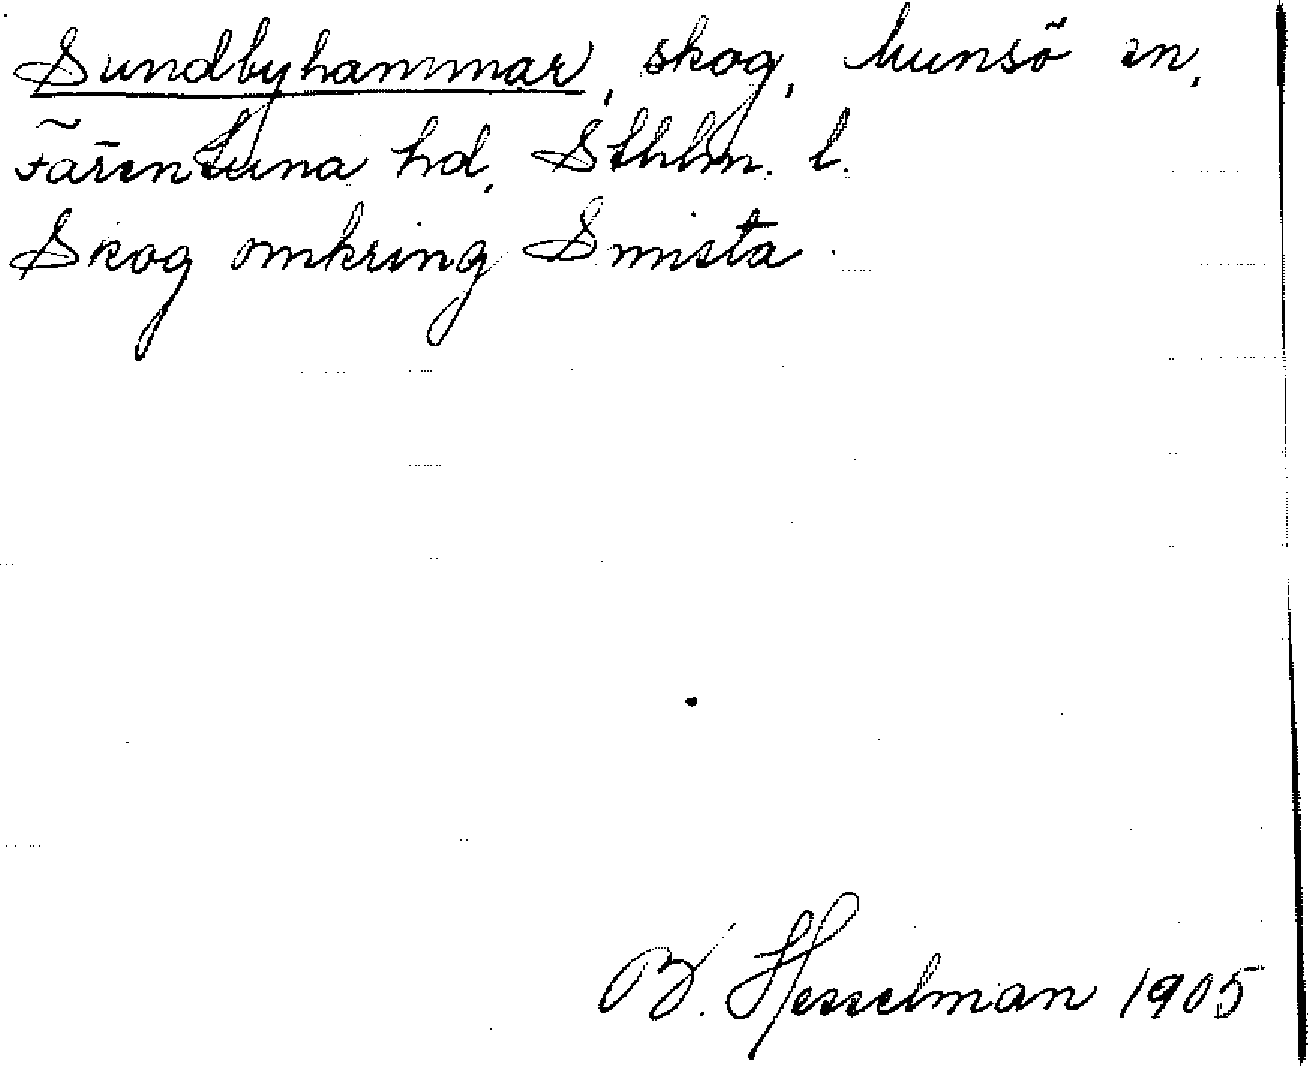 Sundbyhammar, skog, Munsö sn,
Färentuna hd, Sthlm. l.
Skog omkring Smista.
B. Hesselman 1905